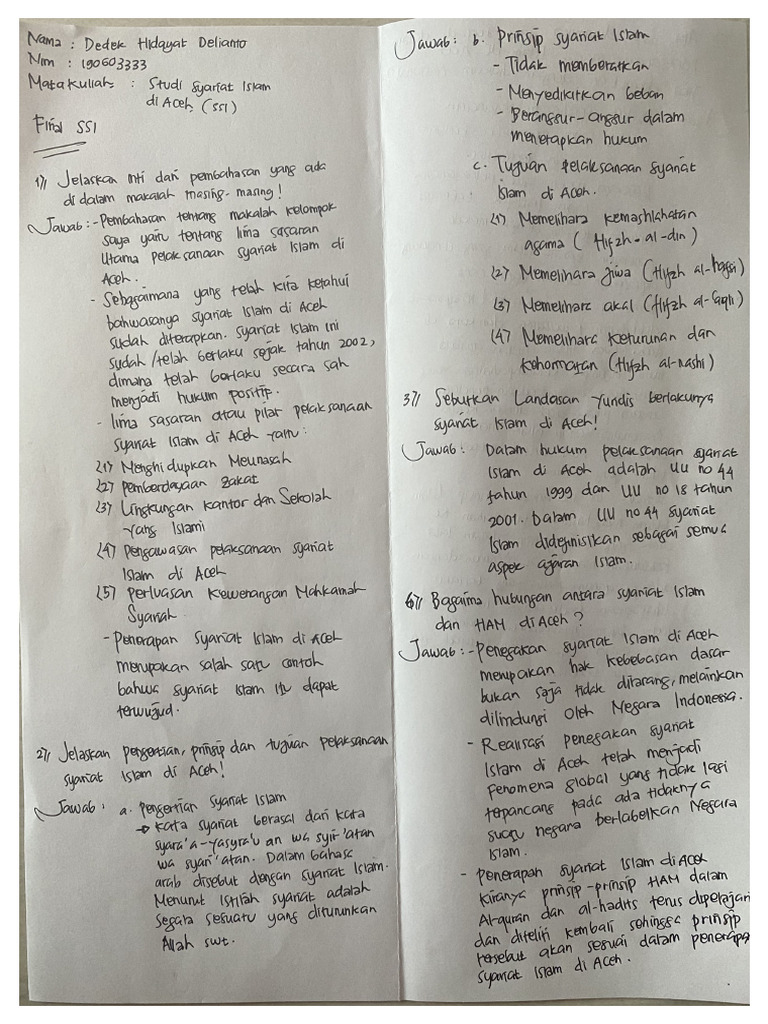 Nama : Dedek Hidayat Delianto
Nim : 190603333
Mata kuliah : Studi Syariat Islam
di Aceh (SSI)
Final SSI
1)) Jelaskan inti dari pembahasan yang ada
di dalam makalah masing-masing!
Jawab : - Pembahasan tentang makalah kelompok
saya yaitu tentang lima sasaran
utama pelaksanaan syariat Islam di
Aceh.
- Sebagaimana yang telah kita ketahui
bahwasanya syariat Islam di Aceh
sudah diterapkan. syariat Islam ini
sudah/telah berlaku sejak tahun 2002,
dimana telah berlaku secara sah
menjadi hukum positip.
- lima sasaran atau pilar pelaksanaan
syariat Islam di Aceh yaitu:
(1) Menghidupkan Meunasah
(2) Pemberdayaan zakat
(3) Lingkungan kantor dan Sekolah
yang Islami
(4) Pengawasan pelaksanaan syariat
Islam di Aceh
(5) Perluasan Kewenangan Mahkamah
Syariah.
- Penerapan Syariat Islam di Aceh
merupakan salah satu contoh
bahwa syariat Islam itu dapat
terwujud.
2)) Jelaskan pengertian, prinsip dan tujuan pelaksanaan
syariat Islam di Aceh!
Jawab : a. Pengertian Syariat Islam
→ Kata syariat berasal dari kata
syara'a-yasyra'u an wa syir'atan
wa syari'atan. Dalam bahasa
arab disebut dengan syariat Islam.
Menurut Istilah syariat adalah
segala sesuatu yang diturunkan
Allah swt.
Jawab : b. Prinsip syariat Islam
- Tidak memberatkan
- Menyedikitkan beban
- Beransur-angsur dalam
menetapkan hukum
c. Tujuan Pelaksanaan syariat
Islam di Aceh.
(1) Memelihara kemashlahatan
agama (Hifzh-al-din)
(2) Memelihara jiwa (Hifzh al-)
(3) Memelihara akal (Hifzh al-)
(4) Memelihara keturunan dan
kehormatan (Hifzh al-nashl)
3)) Sebutkan Landasan Yuridis berlakunya
syariat Islam di Aceh!
Jawab : Dalam hukum pelaksanaan syariat
Islam di Aceh adalah UU no 44
tahun 1999 dan UU no 18 tahun
2001. Dalam UU no 44 syariat
Islam didefinisikan sebagai semua
aspek ajaran Islam.
6)) Bagaima hubungan antara syariat Islam
dan HAM di Aceh?
Jawab : - Penegakan syariat Islam di Aceh
merupakan hak kebebasan dasar
bukan saja tidak dilarang, melainkan
dilindungi oleh Negara Indonesia.
- Realisasi penegakan syariat
Islam di Aceh telah menjadi
Fenomena global yang tidak lagi
terpancang pada ada tidaknya
suatu negara berlabelkan Negara
Islam.
- Penerapan syariat Islam di Aceh
kiranya prinsip-prinsip HAM dalam
Al-quran dan al-hadits terus dipelajari
dan diteliti kembali sehingga prinsip
tersebut akan sesuai dalam penerapa
syariat Islam di Aceh.